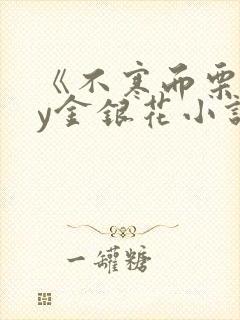 《不寒而栗
y金银花小说
一罐糖